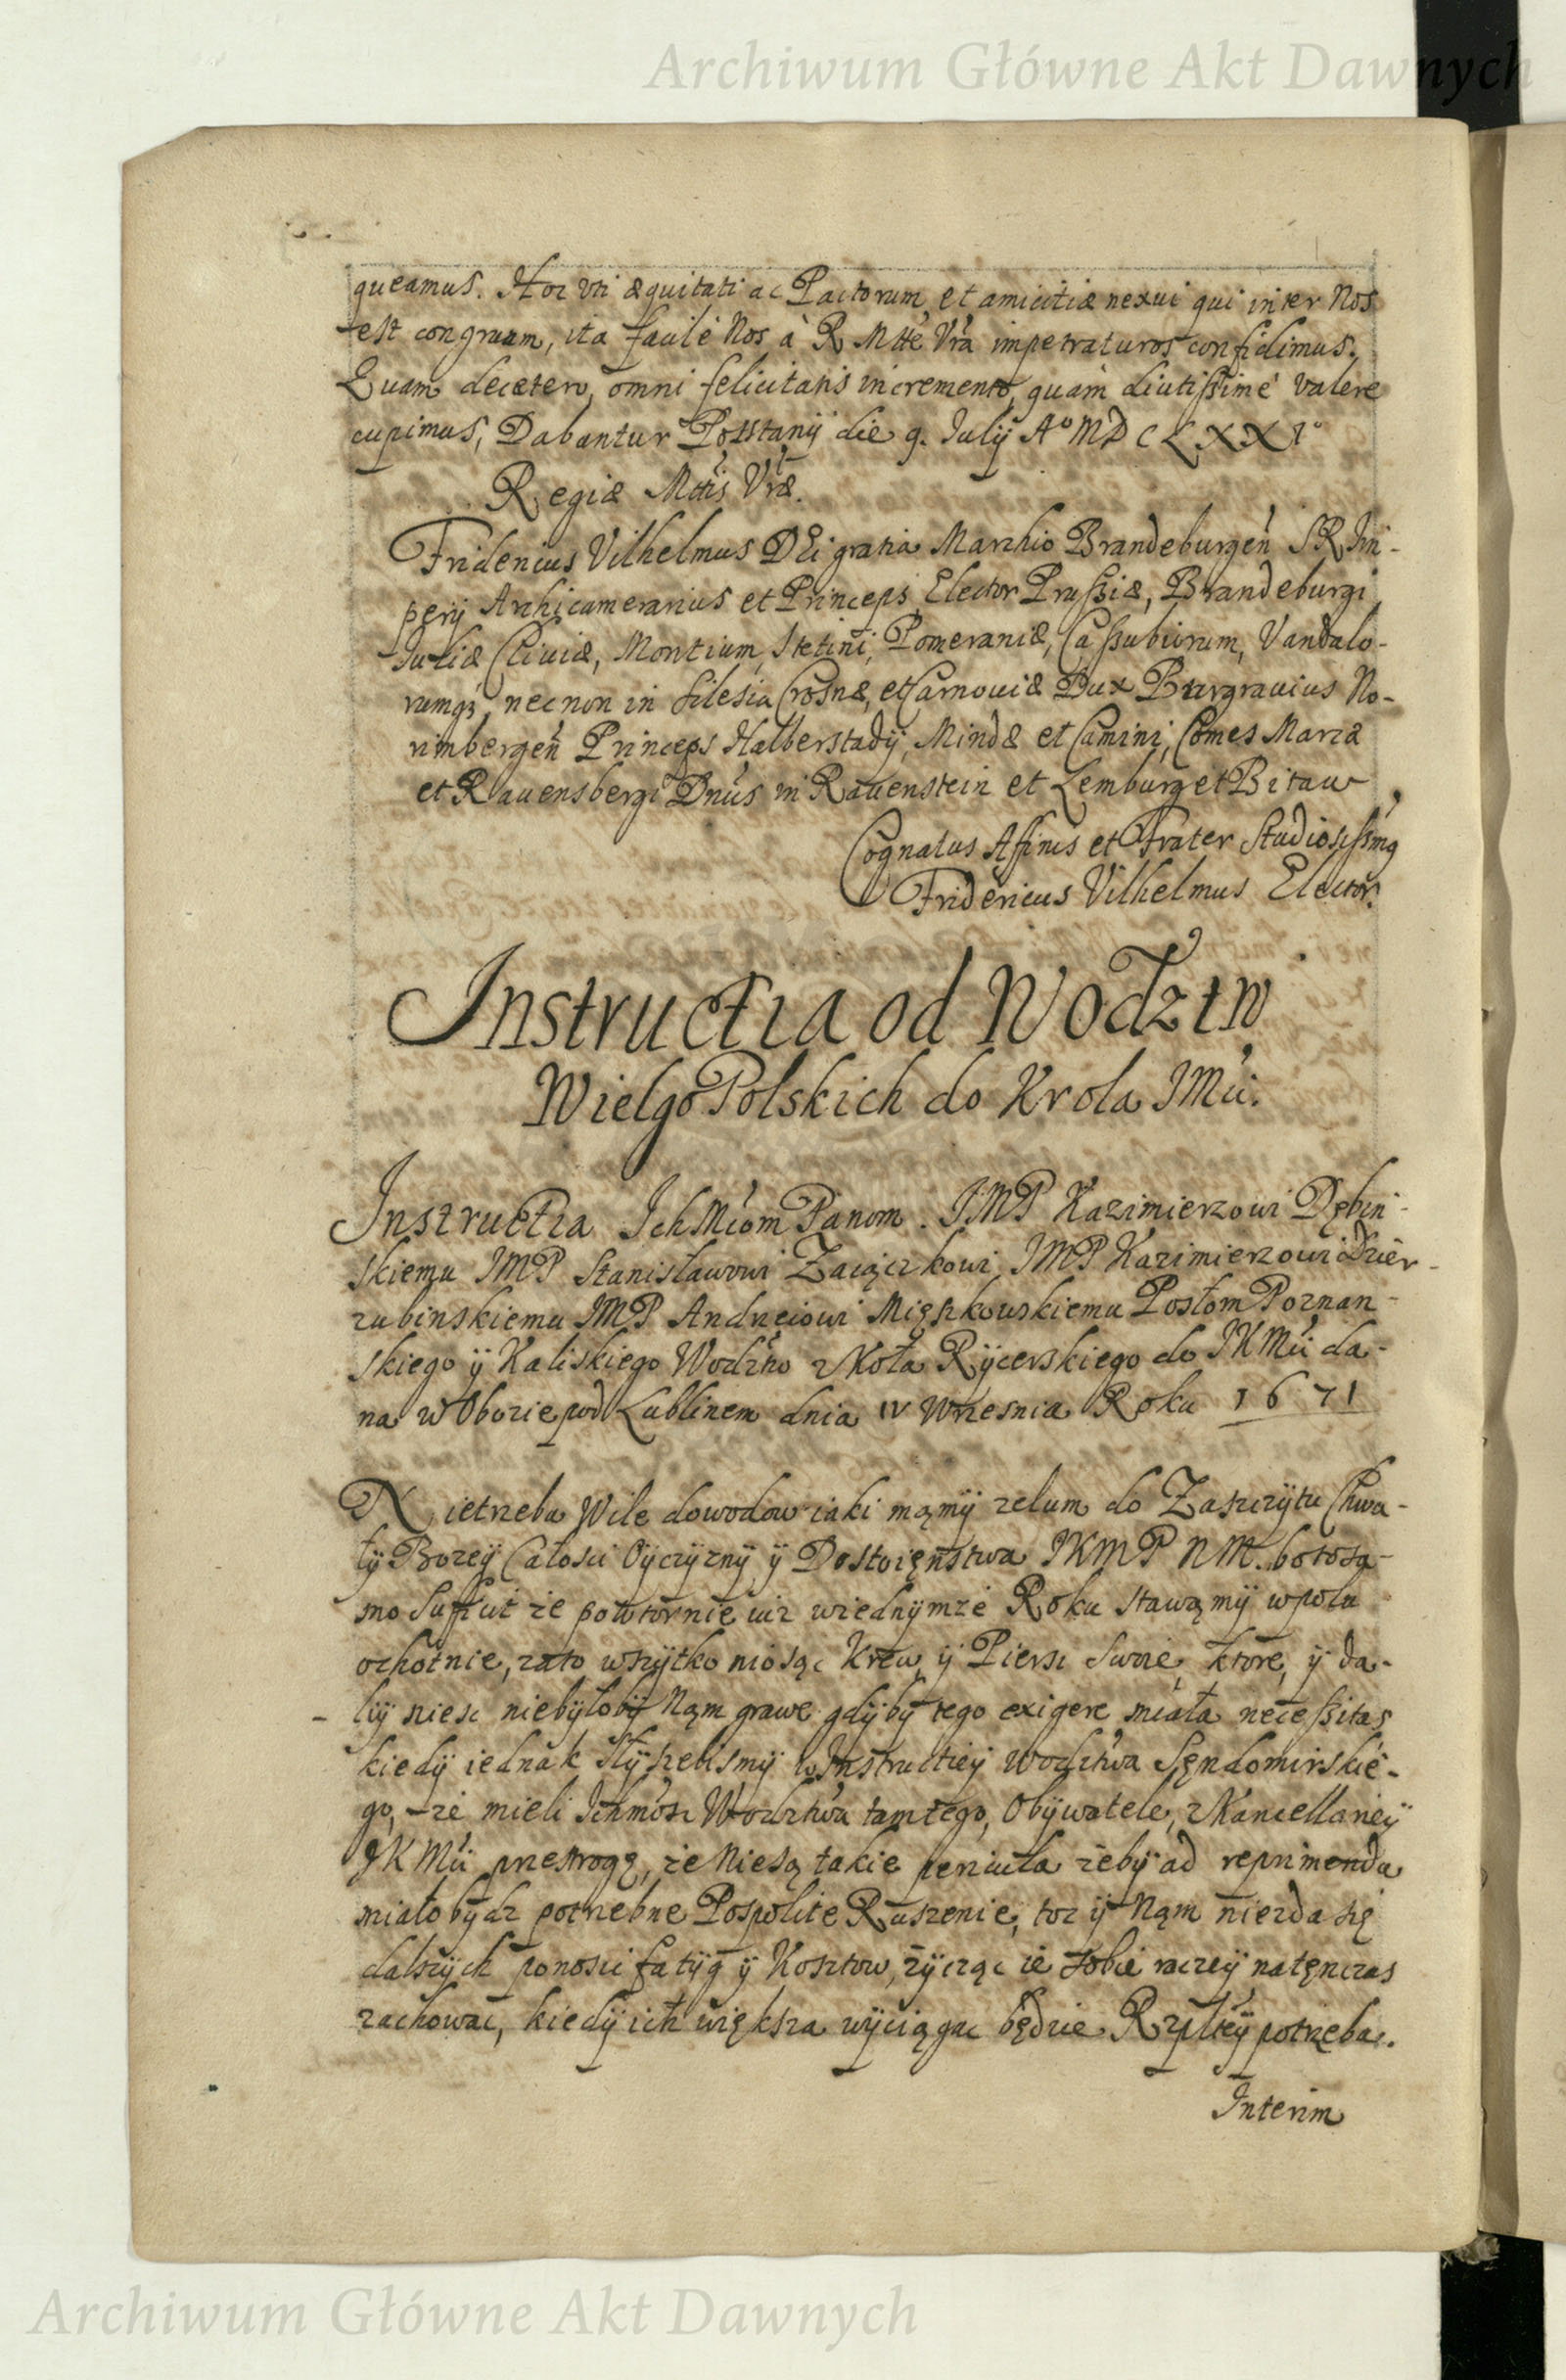 Archiwum Główne Akt Dawnych
queamus. Hoc uti æquitati ac Pactorum, et amicitiæ nexui qui inter Nos
est congruum, ita facilè Nos à R Mtte Vrã impetraturos confidimus.
Quam decætero, omni felicitatis incremento, quàm diutissimè valere
cupimus, Dabantur Postanij die 9. Julij Aº MDCLXXIº
Regiæ Mttis Vræ.
Fridericus Vilhelmus DEi gratia Marchio Brandeburgen̄ SR Im-
perij Archicamerarius et Princeps Elector Prussiæ, Brandeburgi
Juliæ Cliuiæ, Montium, Stetini, Pomeraniæ, Cassubiorum, Vandalo-
rumq3, necnon in Silesia Crosnæ, et Carnouiæ Dux Burgrauius No-
rimbergen̄ Princeps Halberstadij, Mindæ et Camini, Comes Marcæ
et Rauensbergi Dnus in Rauenstein et Lemburg et Bitaw
Cognatus Affinis et Frater Studiosissimg
Fridericus Vilhelmus Elector.
Instructia od Wodztw
WielgoPolskich do Krola JMci.
Instructia Ich Mciom Panom. JMP Kazimierzowi Dębin-
skiemu JMP Stanisławowi Zaiączkowi, JMP Kazimierzowi Dzier-
zubinskiemu JMP Andrzeiowi Mięszkowskiemu Posłom Poznan-
skiego ÿ Kaliskiego Wodztwo z Koła Rÿcerskiego do JKMci da-
na w Obozie pod Lublinem dnia IV Wrzesnia Roku 1671
Nietrzeba Wile dowodow iaki mąmÿ zelum do Zaszczÿtu Chwa-
łÿ Bozeÿ Całosci Oÿczÿznÿ ÿ Dostoięnstwa JKMP NM. bo tosa-
mo Sufficit że powtornie iuz wiednÿmże Roku stawąmÿ wpolu
ochotnie, zato wszÿtko niosąc Krew ÿ Piersi Swoie, ktore, ÿ da-
liÿ niesc niebÿłobÿ Nąm grawe gdÿbÿ tego exigere miała necessitas
kiedÿ iednak słÿszelismÿ w Instructieÿ Wodztwa Sęndomirskie-
go, że mieli Ichmosc Wodztwa tamtego, Obÿwatele, z Kancellarieÿ
JKMci przestrogę, że Niesą takie pericula zebÿ ad reprimenda
miało bÿdz potrzebne Pospolite Ruszenie, toz ÿ Nąm niezda się
dalszÿch ponosic fatÿg ÿ Kosztow, zÿcząc ie sobie raczeÿ natęnczas
zachowac, kiedÿ ich większa wÿciągac będzie Rzpltey potrzeba.
Interim
Archiwum Główne Akt Dawnych